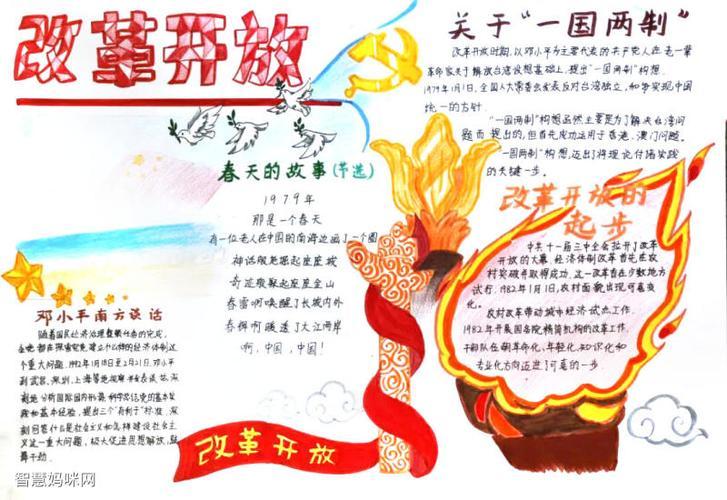 改革开放
关于“一国两制”
改革开放时期,以邓小平为主要代表的共产党人在老一辈
革命家关于解放台湾设想基础上,提出“一国两制”构想.
1979年1月1日,全国人大常委会发表反对台湾独立,和平实现中国
统一的方针.
“一国两制”构想虽然主要是为了解决台湾问
题而提出的,但首先成功运用于香港、澳门问题。
“一国两制”构想,迈出了将理论付诸实践
的关键一步。
春天的故事(节选)
1979年
那是一个春天
有一位老人在中国的南海边画了一个圈
神话般地崛起座座城
奇迹般聚起座座金山
春雷啊唤醒了长城内外
春辉啊暖透了大江两岸
啊,中国,中国!
改革开放的
起步
中共十一届三中全会拉开了改革
开放的大幕.经济体制改革首先在农
村突破并取得成功,这一改革首在少数地方
试行.1982年1月1日,农村面貌出现可喜变
化。
农村改革带动城市经济试点工作.
1982年开展国务院精简机构的改革工作,
干部队伍朝革命化、年轻化、知识化和
专业化方向迈进了可喜的一步
邓小平南方谈话
随着国民经济治理整顿任务的完成,
这个重大问题.1992年1月18日至2月21日,邓小平
到武昌、深圳、上海等地视察并发表谈话.深
刻地分析国际国内形势,科学总结党的基本实
践和基本经验,提出三个“有利于”标准,深
刻回答什么是社会主义和怎样建设社会主
义这一重大问题,极大促进思想解放,鼓
舞干劲.
改革开放
智慧妈咪网